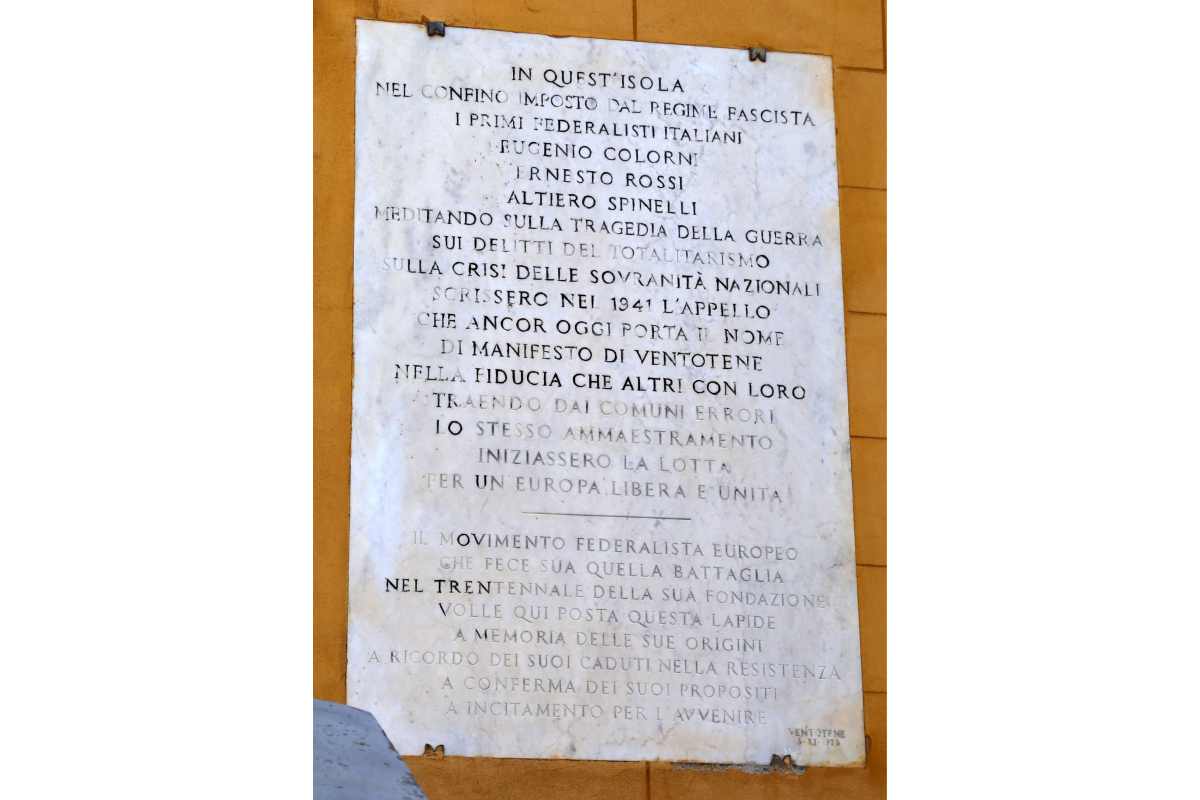 IN QUEST'ISOLA
NEL CONFINO IMPOSTO DAL REGIME FASCISTA
I PRIMI FEDERALISTI ITALIANI
EUGENIO COLORNI
ERNESTO ROSSI
ALTIERO SPINELLI
MEDITANDO SULLA TRAGEDIA DELLA GUERRA
SUI DELITTI DEL TOTALITARISMO
SULLA CRISI DELLE SOVRANITÀ NAZIONALI
SCRISSERO NEL 1941 L'APPELLO
CHE ANCOR OGGI PORTA IL NOME
DI MANIFESTO DI VENTOTENE
NELLA FIDUCIA CHE ALTRI CON LORO
TRAENDO DAI COMUNI ERRORI
LO STESSO AMMAESTRAMENTO
INIZIASSERO LA LOTTA
PER UN'EUROPA LIBERA E UNITA
IL MOVIMENTO FEDERALISTA EUROPEO
CHE FECE SUA QUELLA BATTAGLIA
NEL TRENTENNALE DELLA SUA FONDAZIONE
VOLLE QUI POSTA QUESTA LAPIDE
A MEMORIA DELLE SUE ORIGINI
A RICORDO DEI SUOI CADUTI NELLA RESISTENZA
A CONFERMA DEI SUOI PROPOSITI
A INCITAMENTO PER L'AVVENIRE
VENTOTENE